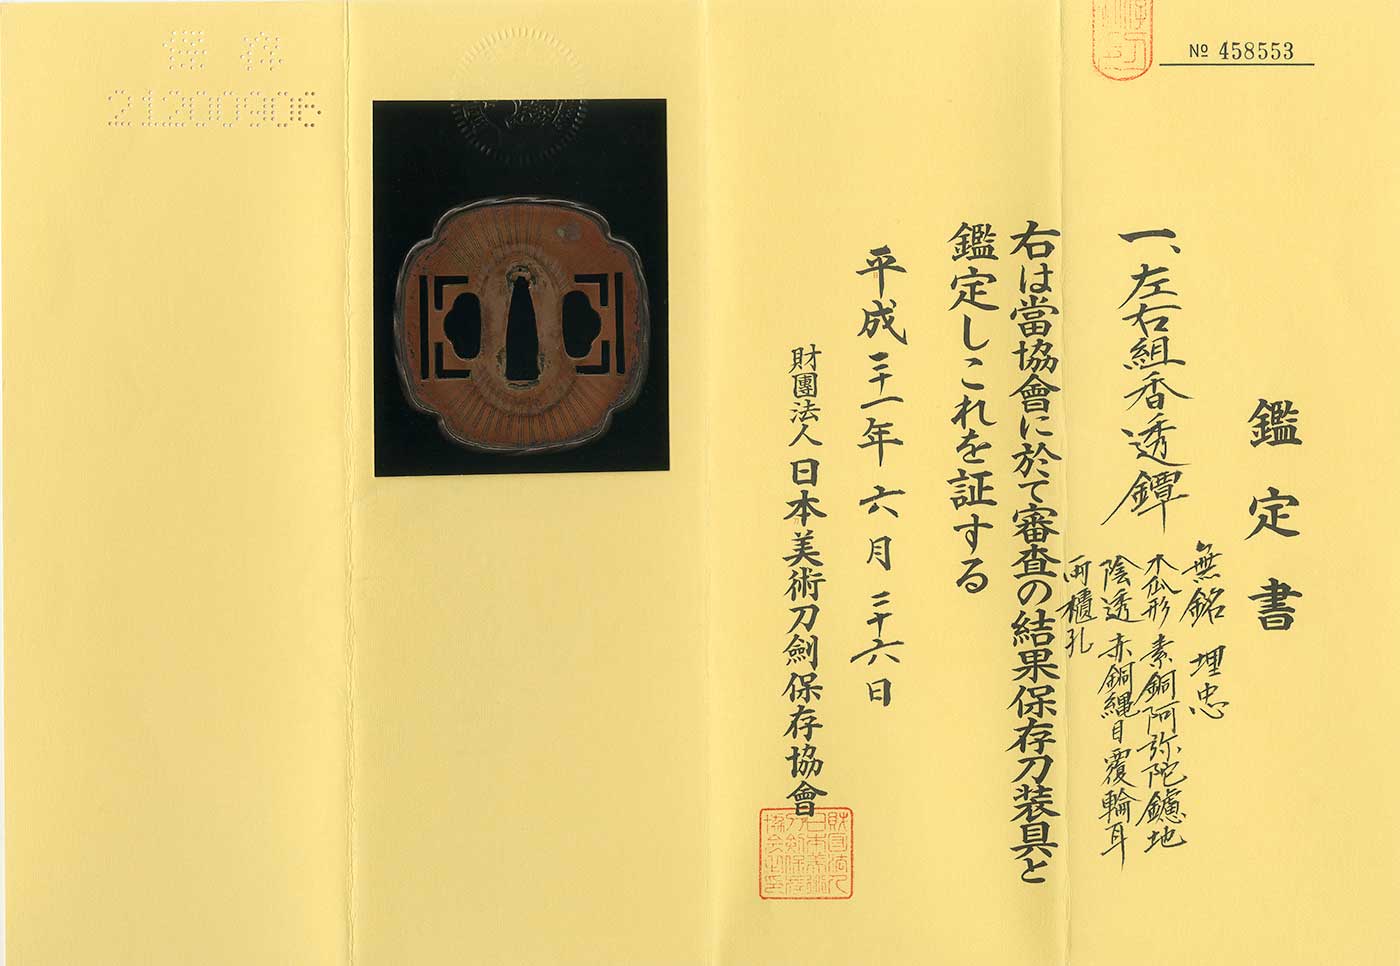 № 458553
鑑定書
一、左右組香透鐔
無銘 埋忠
木瓜形 素銅阿弥陀鑢地
陰透 赤銅縄目覆輪耳
両櫃孔
右は當協會に於て審査の結果保存刀装具と
鑑定しこれを証する
平成二十一年六月二十六日
財團法人日本美術刀劍保存協會
保存
21200906